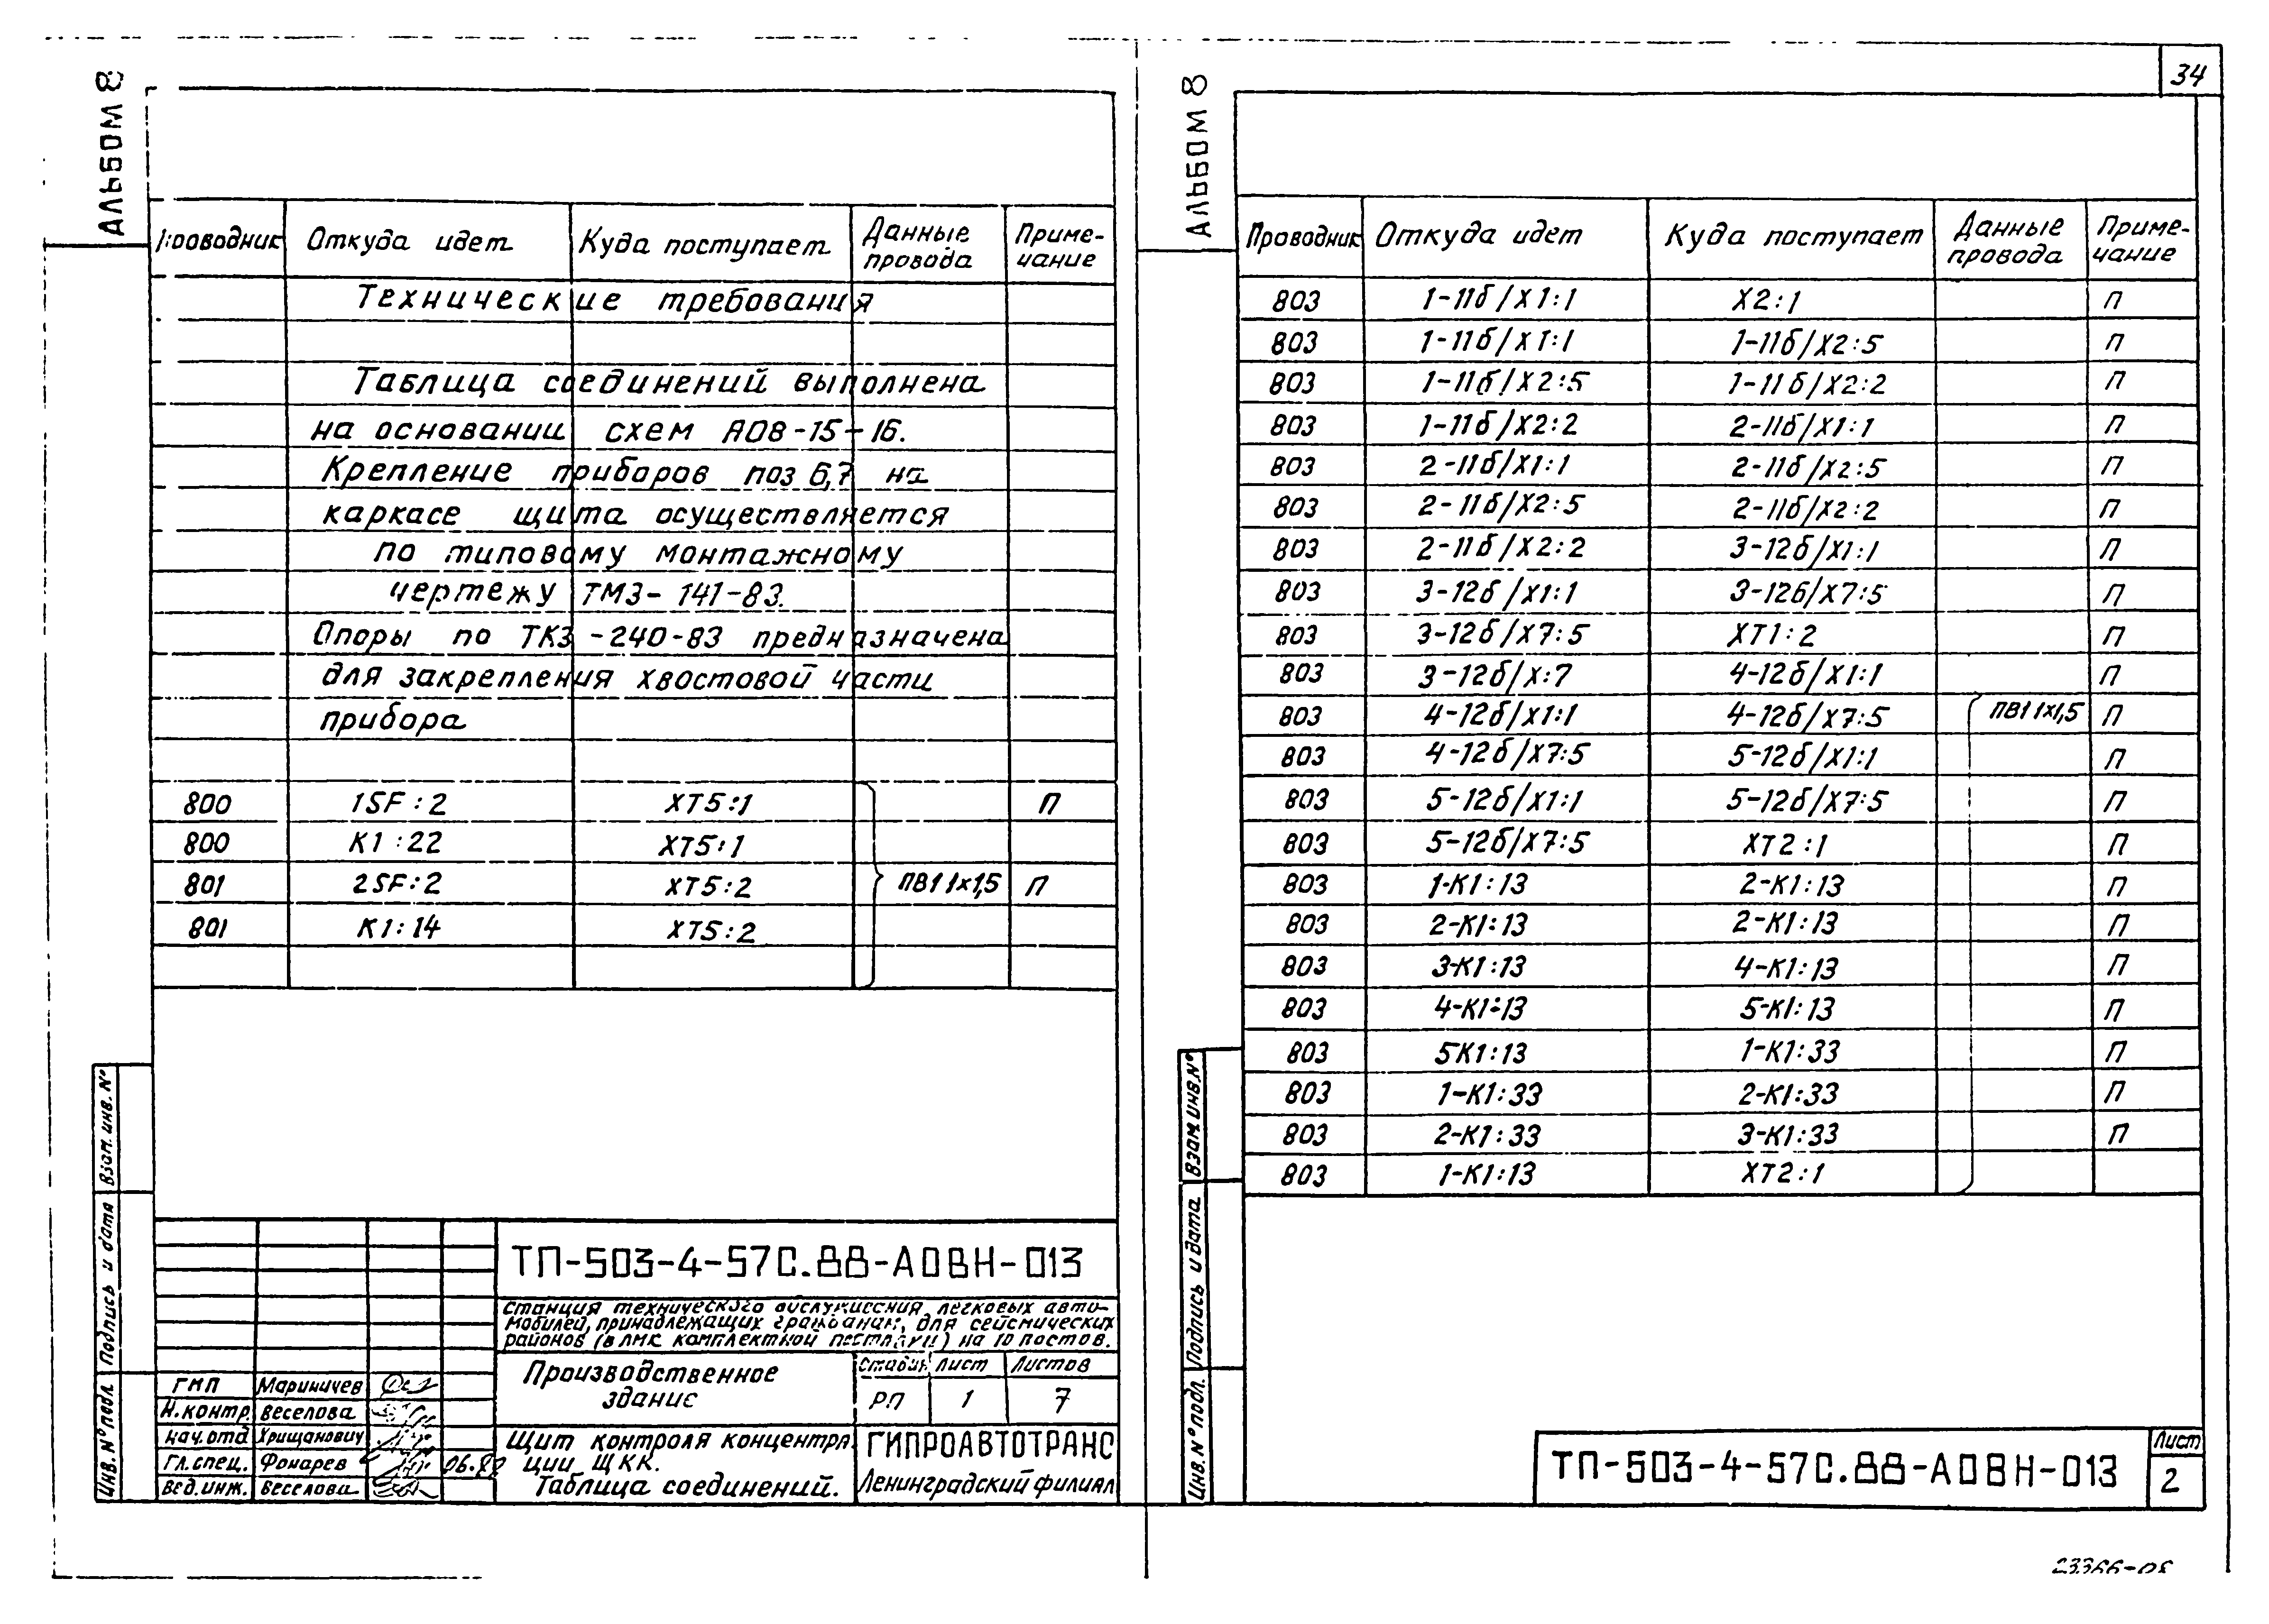 34
АЛЬБОМ 8
Проводник Откуда идет Куда поступает Данные провода Приме-чание
Технические требования
Таблица соединений выполнена
на основании схем АОВ-15-16.
Крепление приборов поз 6,7 на
каркасе щита осуществляется
по типовому монтажному
чертежу ТМ3-141-83.
Опоры по ТК3-240-83 предназначена
для закрепления хвостовой части
прибора
800 1SF:2 XT5:1 П
800 К1:22 XT5:1
801 2SF:2 XT5:2 ПВ1 1х1,5 П
801 К1:14 XT5:2
Взам. инв. №
Подпись и дата
Инв. № подл.
ТП-503-4-57С.88-АОВН-013
Станция технического обслуживания легковых авто-
мобилей, принадлежащих гражданам, для сейсмических
районов (в ЛМК комплектной поставки) на 10 постов.
Производственное
здание
Стадия Лист Листов
РП 1 7
ГИП Мариничев
Н.контр. Веселова
Нач.отд Хрищанович
Гл.спец. Фонарев
Вед.инж. Веселова
Щит контроля концентра
ции ЩКК.
Таблица соединений.
ГИПРОАВТОТРАНС
Ленинградский филиал
АЛЬБОМ 8
Проводник Откуда идет Куда поступает Данные провода Приме-чание
803 1-11б/X1:1 X2:1 П
803 1-11б/X1:1 1-11б/X2:5 П
803 1-11б/X2:5 1-11б/X2:2 П
803 1-11б/X2:2 2-11б/X1:1 П
803 2-11б/X1:1 2-11б/X2:5 П
803 2-11б/X2:5 2-11б/X2:2 П
803 2-11б/X2:2 3-12б/X1:1 П
803 3-12б/X1:1 3-12б/X7:5 П
803 3-12б/X7:5 XT1:2 П
803 3-12б/X:7 4-12б/X1:1 П
803 4-12б/X1:1 4-12б/X7:5 ПВ1 1х1,5 П
803 4-12б/X7:5 5-12б/X1:1 П
803 5-12б/X1:1 5-12б/X7:5 П
803 5-12б/X7:5 XT2:1 П
803 1-К1:13 2-К1:13 П
803 2-К1:13 2-К1:13 П
803 3-К1:13 4-К1:13 П
803 4-К1:13 5-К1:13 П
803 5К1:13 1-К1:33 П
803 1-К1:33 2-К1:33 П
803 2-К1:33 3-К1:33 П
803 1-К1:13 XT2:1
Взам.инв.№
Подпись и дата
Инв. № подл.
ТП-503-4-57С.88-АОВН-013
Лист
2